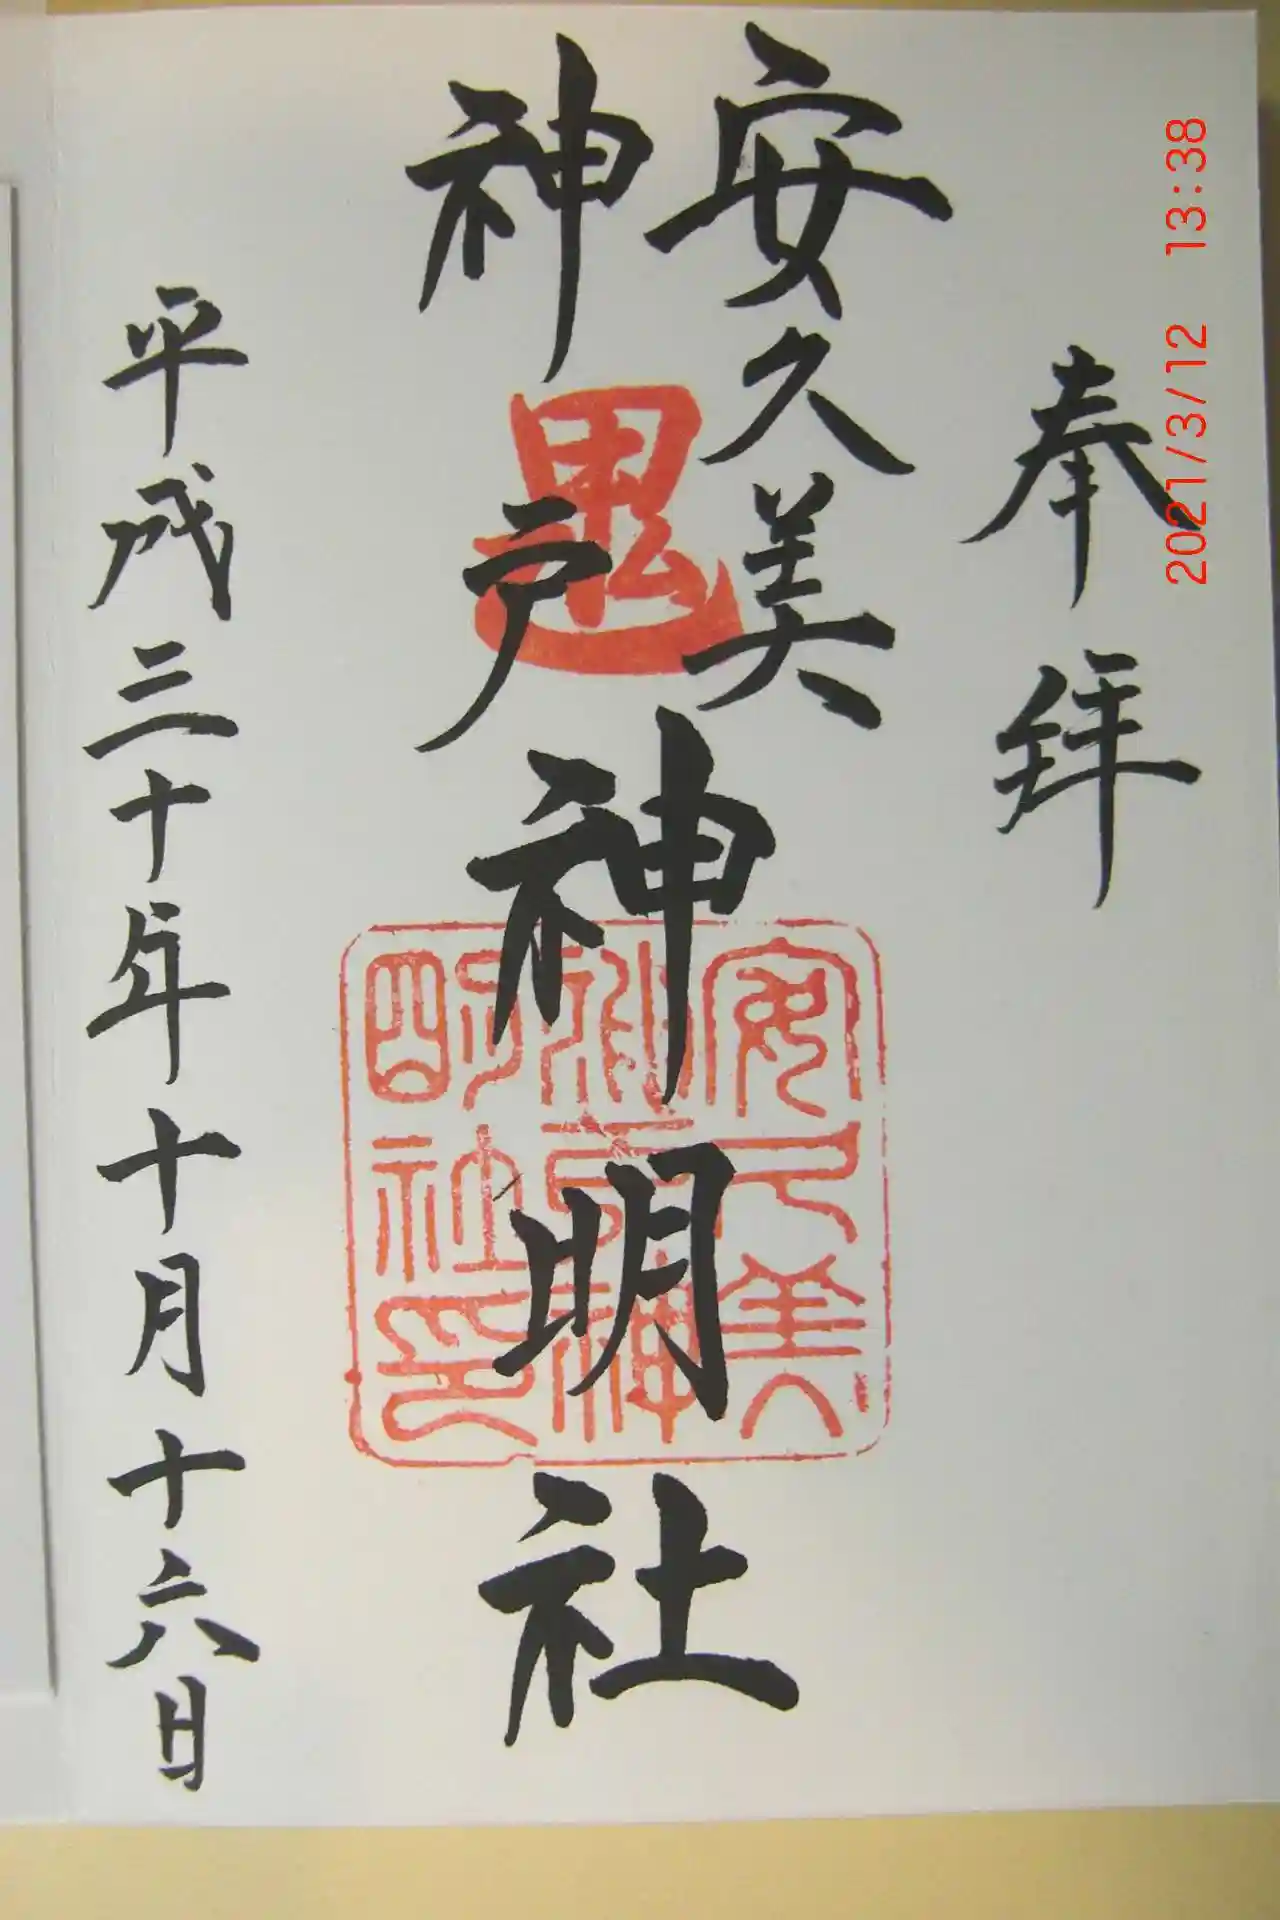 奉拝
安久美
神戸
神明社
鬼
安久美
神戸神
明社印
平成三十年十月十六日
2021/3/12 13:38